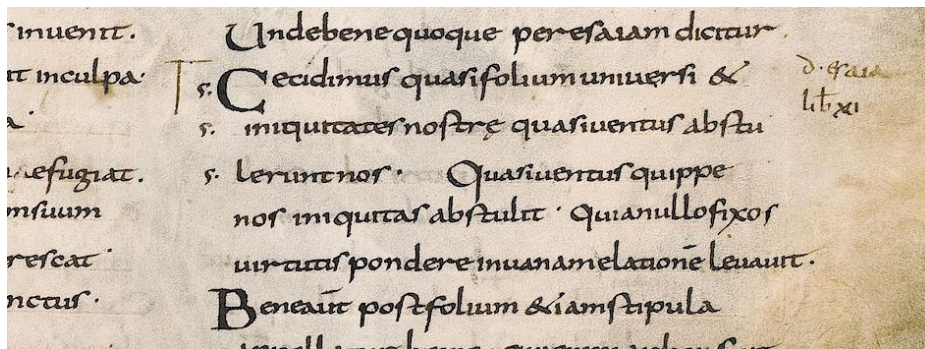 inuenit.
inculpa·
refugiat.
insuum
rescat·
nctus·
Undebenequoque peresaiam dicitur.
s. Cecidimus quasifolium uniuersi &
s. iniquitates nostrę quasiuentus abstu
s. lerunt nos· Quasiuentus quippe
nos iniquitas abstulit· Quianullofixos
uirtutis pondere inuanamelationē leuauit.
Beneaūt postfolium &iamstipula
d. esaia
lib xi